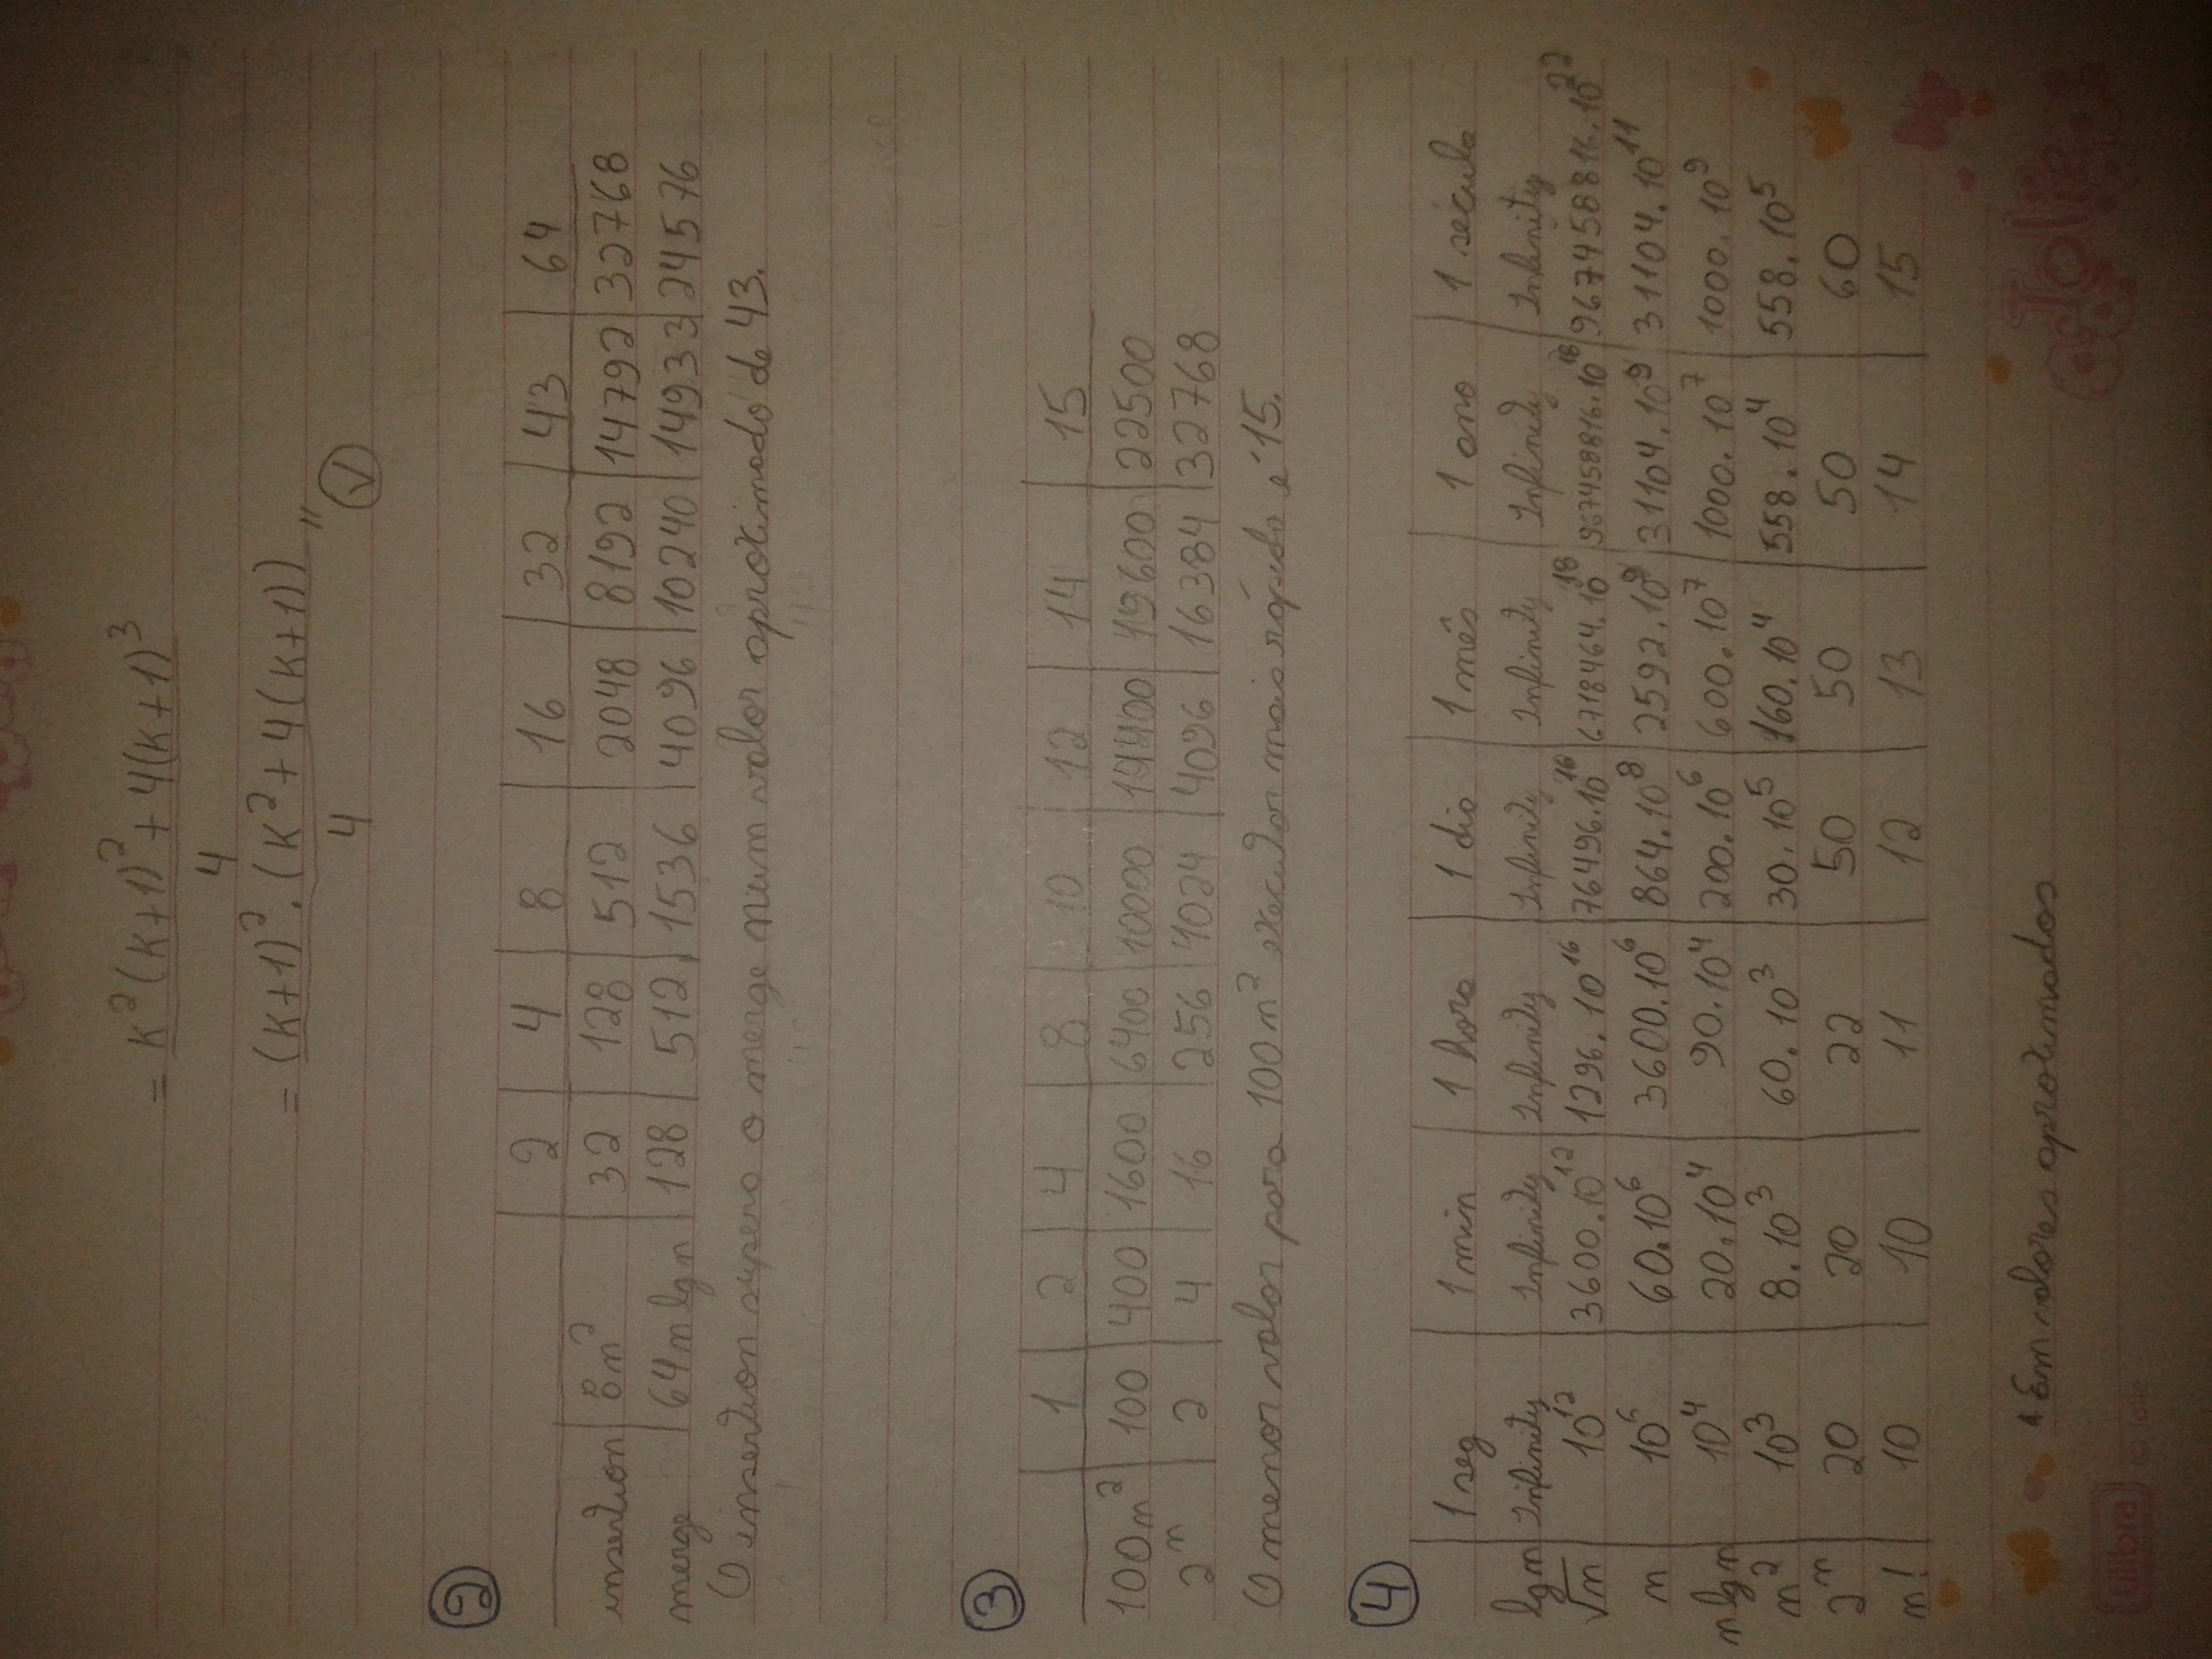 = k²(k+1)² + 4(k+1)³
4
= (k+1)² . (k² + 4(k+1)) „
4
✓
2
2 4 8 16 32 43 64
insertion 8n² 32 128 512 2048 8192 14792 32768
merge 64n lg n 128 512 1536 4096 10240 14933 24576
O insertion supera o merge num valor aproximado de 43.
3
1 2 4 8 10 12 14 15
100n² 100 400 1600 6400 10000 14400 19600 22500
2ⁿ 2 4 16 256 1024 4096 16384 32768
O menor valor para 100n² executar mais rápido é 15.
4
1 seg 1 min 1 hora 1 dia 1 mês 1 ano 1 século
lg n Infinity Infinity Infinity Infinity Infinity Infinity Infinity
√n 10¹² 3600.10¹² 1296.10¹⁶ 76496.10¹⁶ 6718464.10¹⁸ 967458816.10¹⁸ 967458816.10²²
n 10⁶ 60.10⁶ 3600.10⁶ 864.10⁸ 2592.10⁹ 31104.10⁹ 31104.10¹¹
n lg n 10⁴ 20.10⁴ 90.10⁴ 200.10⁶ 600.10⁷ 1000.10⁷ 1000.10⁹
n² 10³ 8.10³ 60.10³ 30.10⁵ 160.10⁴ 558.10⁴ 558.10⁵
2ⁿ 20 20 22 50 50 50 60
n! 10 10 11 12 13 14 15
* Em valores aproximados
Jolie
tilibra © Jolie